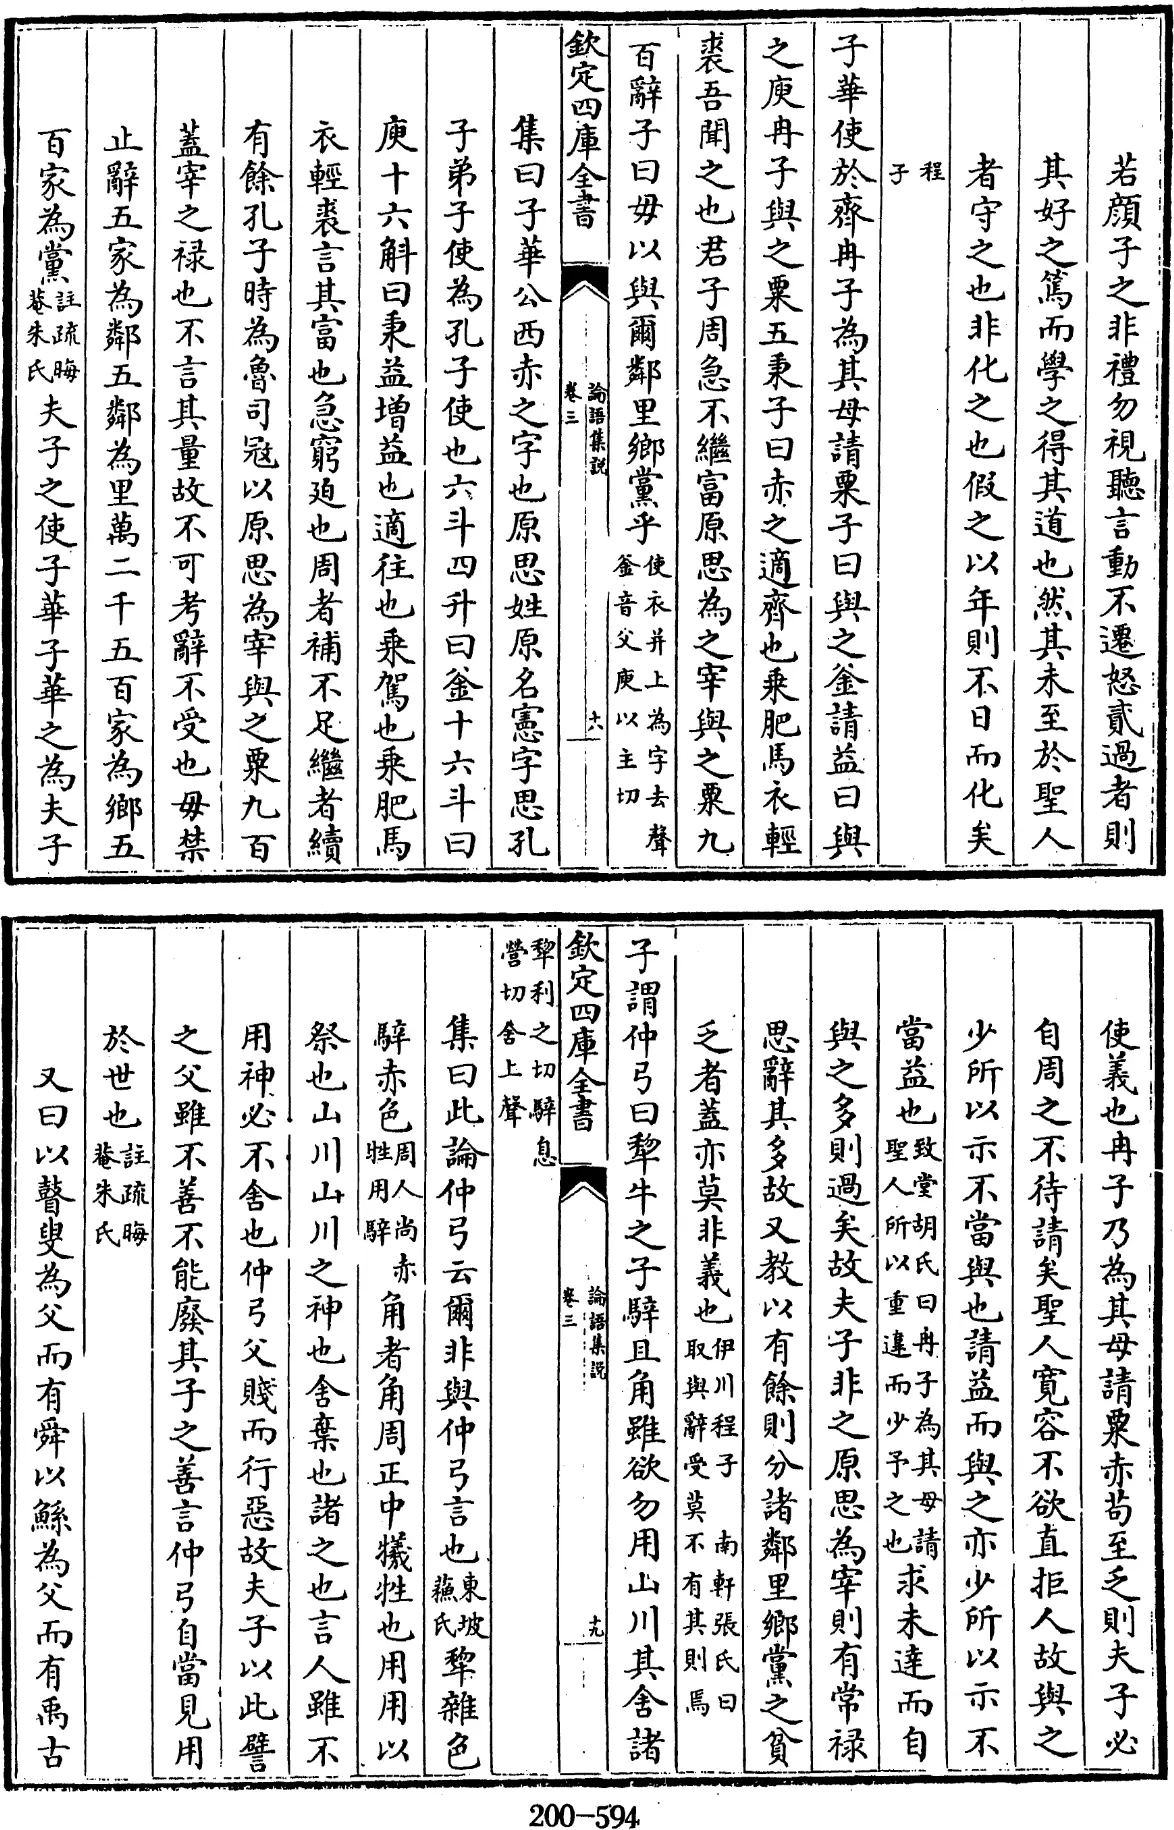 若顔子之非禮勿視聽言動不遷怒貳過者則
其好之篤而學之得其道也然其未至於聖人
者守之也非化之也假之以年則不日而化矣
程子
子華使於齊冉子為其母請粟子曰與之釜請益曰與
之庾冉子與之粟五秉子曰赤之適齊也乗肥馬衣輕
裘吾聞之也君子周急不繼富原思為之宰與之粟九
百辭子曰毋以與爾鄰里鄉黨乎使衣并上為字去聲釜音父庾以主切
欽定四庫全書
論語集説
卷三
十八
集曰子華公西赤之字也原思姓原名憲字思孔
子弟子使為孔子使也六斗四升曰釜十六斗曰
庾十六斛曰秉益增益也適往也乗駕也乗肥馬
衣輕裘言其富也急窮廹也周者補不足繼者續
有餘孔子時為魯司寇以原思為宰與之粟九百
蓋宰之禄也不言其量故不可考辭不受也毋禁
止辭五家為鄰五鄰為里萬二千五百家為鄉五
百家為黨註疏晦菴朱氏夫子之使子華子華之為夫子
使義也冉子乃為其母請粟赤苟至乏則夫子必
自周之不待請矣聖人寛容不欲直拒人故與之
少所以示不當與也請益而與之亦少所以示不
當益也致堂胡氏曰冉子為其母請聖人所以重違而少予之也求未達而自
與之多則過矣故夫子非之原思為宰則有常禄
思辭其多故又教以有餘則分諸鄰里鄉黨之貧
乏者蓋亦莫非義也伊川程子 南軒張氏曰取與辭受莫不有其則焉
子謂仲弓曰犂牛之子騂且角雖欲勿用山川其舍諸
欽定四庫全書
論語集説
卷三
十九
犂利之切騂息營切舍上聲
集曰此論仲弓云爾非與仲弓言也東坡蘇氏犂雜色
騂赤色周人尚赤牲用騂角者角周正中犧牲也用用以
祭也山川山川之神也舍棄也諸之也言人雖不
用神必不舍也仲弓父賤而行惡故夫子以此譬
之父雖不善不能廢其子之善言仲弓自當見用
於世也註疏晦菴朱氏
又曰以瞽叟為父而有舜以鯀為父而有禹古
200-594